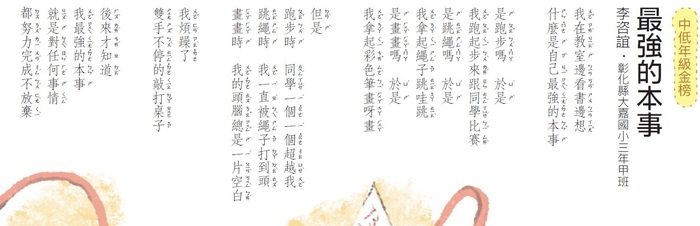 中低年級金榜
最強的本事
李咨誼・彰化縣大嘉國小三年甲班
我在教室邊看書邊想
什麼是自己最強的本事
是跑步嗎 於是
我跑起步來跟同學比賽
是跳繩嗎 於是
我拿起繩子跳哇跳
是畫畫嗎 於是
我拿起彩色筆畫呀畫
但是
跑步時 同學一個一個超越我
跳繩時 我一直被繩子打到頭
畫畫時 我的頭腦總是一片空白
我煩躁了
雙手不停的敲打桌子
後來才知道
我最強的本事
就是對任何事情
都努力完成不放棄